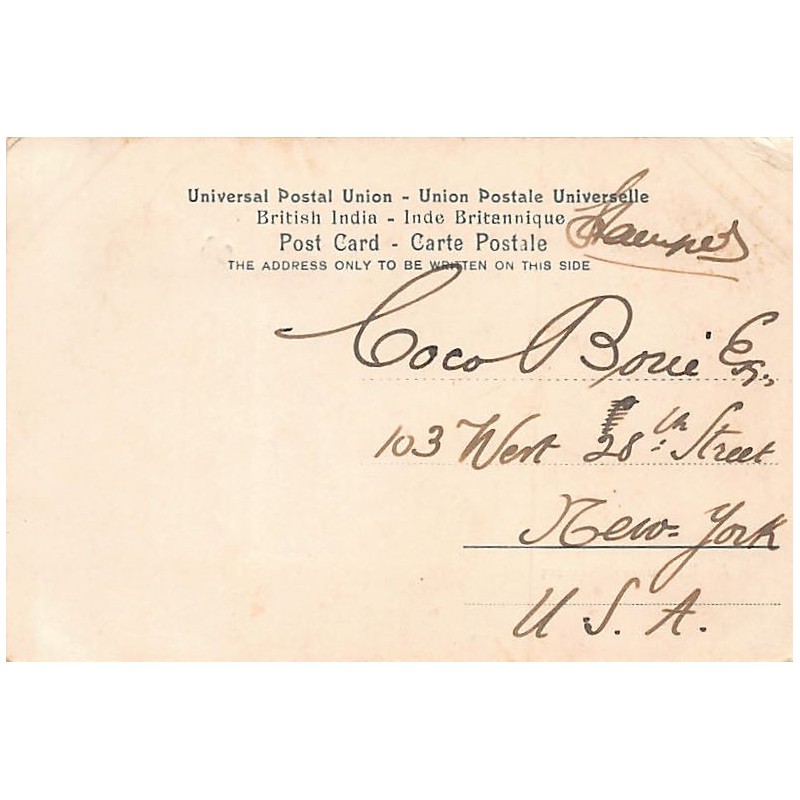 Universal Postal Union - Union Postale Universelle
British India - Inde Britannique
Post Card - Carte Postale
THE ADDRESS ONLY TO BE WRITTEN ON THIS SIDE
Coco Borie Esq.,
103 West 28th Street
New-York
U.S.A.